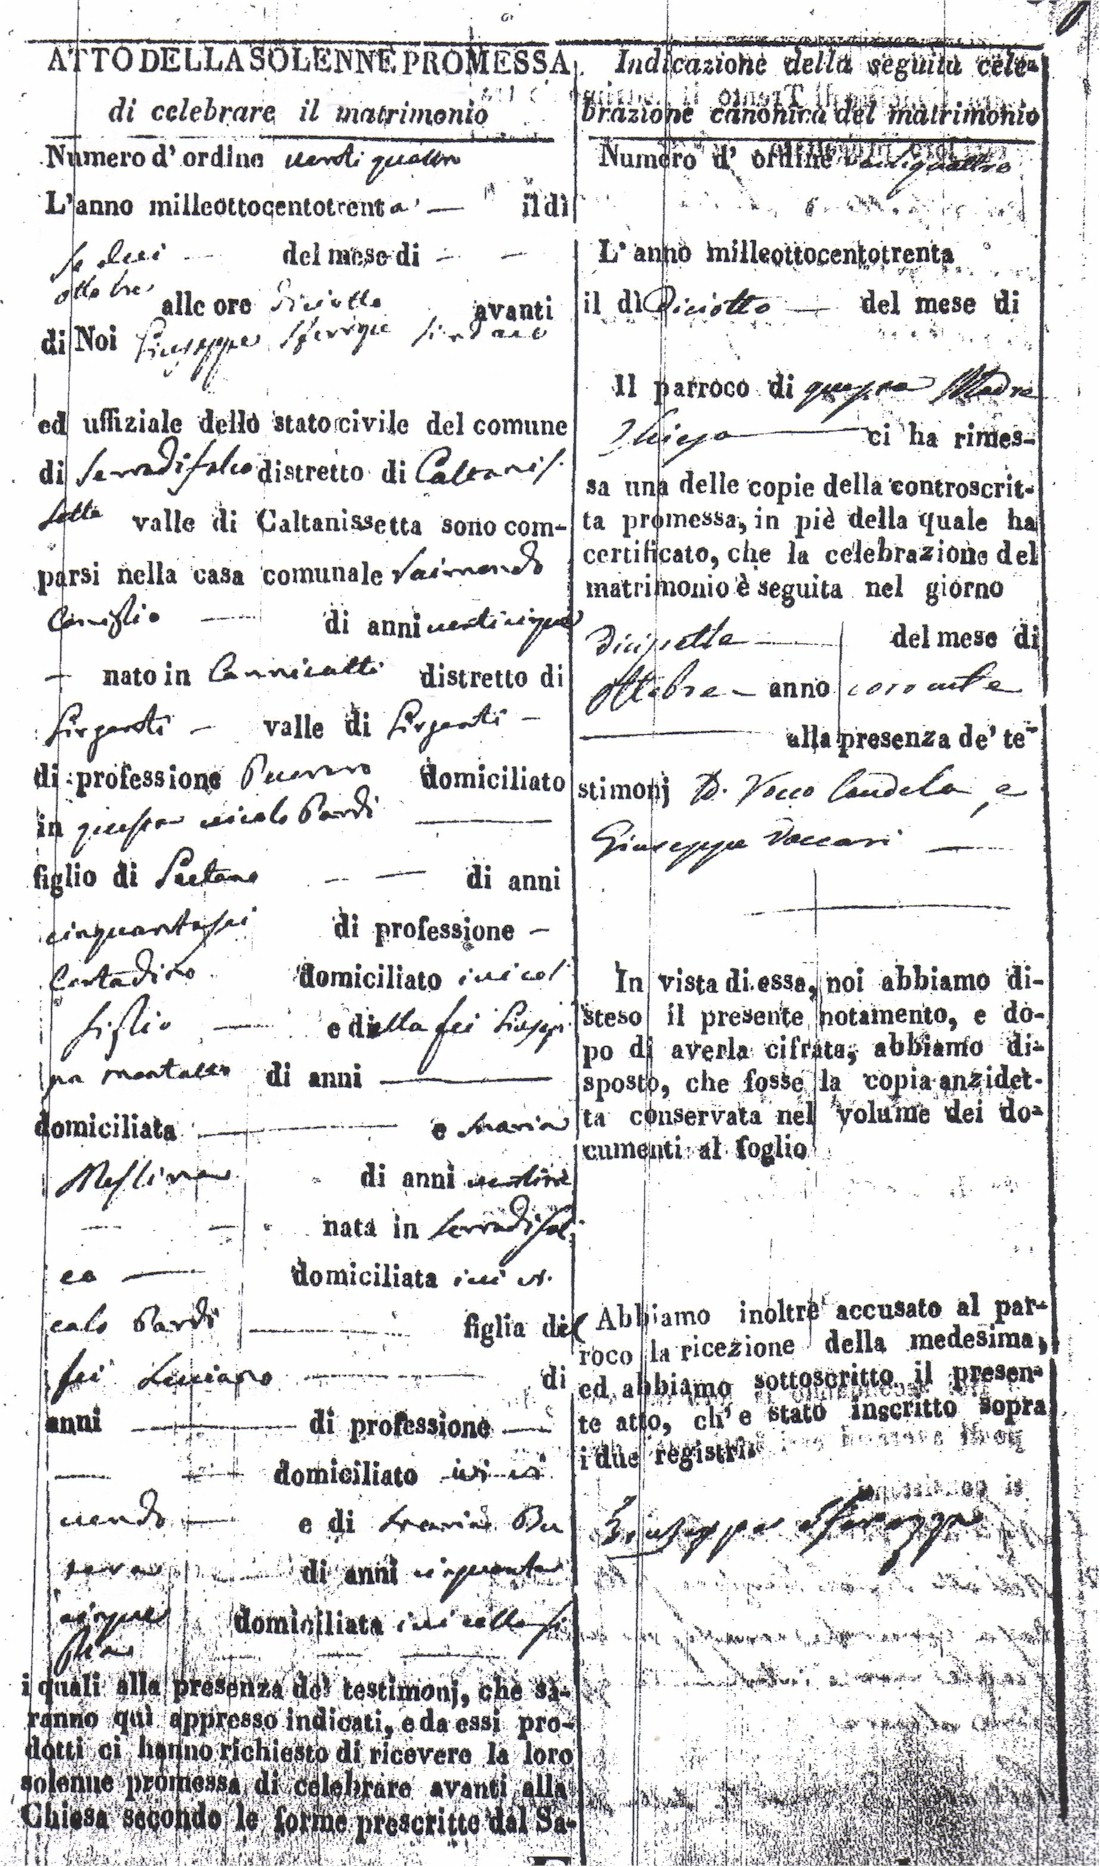 ATTO DELLA SOLENNE PROMESSA
di celebrare il matrimonio
Numero d' ordine venti quattro
L'anno milleottocentotrenta — il dì
Sedeci — del mese di — —
ottobre alle ore diciotto avanti
di Noi Giuseppe Sferrazza Sindaco
ed uffiziale dello stato civile del comune
di Serradifalco distretto di Caltanis
setta valle di Caltanissetta sono com-
parsi nella casa comunale Raimondo
Coniglio — di anni venticinque
— nato in Cannicatti distretto di
Girgenti — valle di Girgenti —
di professione domiciliato
in questa vicolo Pardi —
figlio di Gaetano — — di anni
cinquantasei di professione —
Contadino domiciliato ivi col
figlio — e di della fu Giusep
pa Montalto di anni —
domiciliata — e Maria
Messina di anni
— — nata in Serradifal
co — domiciliata ivi vi
colo Pardi — figlia del
fu Luciano — di
anni — di professione —
— — domiciliato ivi vi
vendo — e di Maria Bu
— di anni cinquanta
cinque domiciliata ivi colla fi
glia — —
i quali alla presenza de' testimonj, che sa-
ranno qui appresso indicati, e da essi pro-
dotti ci hanno richiesto di ricevere la loro
solenne promessa di celebrare avanti alla
Chiesa secondo le forme prescritte dal Sa-
Indicazione della seguita cele-
brazione canonica del matrimonio
Numero d' ordine ventiquattro
L' anno milleottocentotrenta
il dì Diciotto — del mese di
Il parroco di questa Madre
Chiesa — ci ha rimes-
sa una delle copie della controscrit-
ta promessa, in piè della quale ha
certificato, che la celebrazione del
matrimonio è seguita nel giorno
Dicisette — del mese di
Ottobre — anno corrente
— alla presenza de' te-
stimonj D. Rocco Candela, e
Giuseppe Vaccari —
In vista di essa, noi abbiamo di-
steso il presente notamento, e do-
po di averla cifrata, abbiamo di-
sposto, che fosse la copia anzidet-
ta conservata nel volume dei do-
cumenti al foglio
Abbiamo inoltre accusato al par-
roco la ricezione della medesima,
ed abbiamo sottoscritto il presen-
te atto, ch' e stato inscritto sopra
i due registri.
Giuseppe Sferrazza